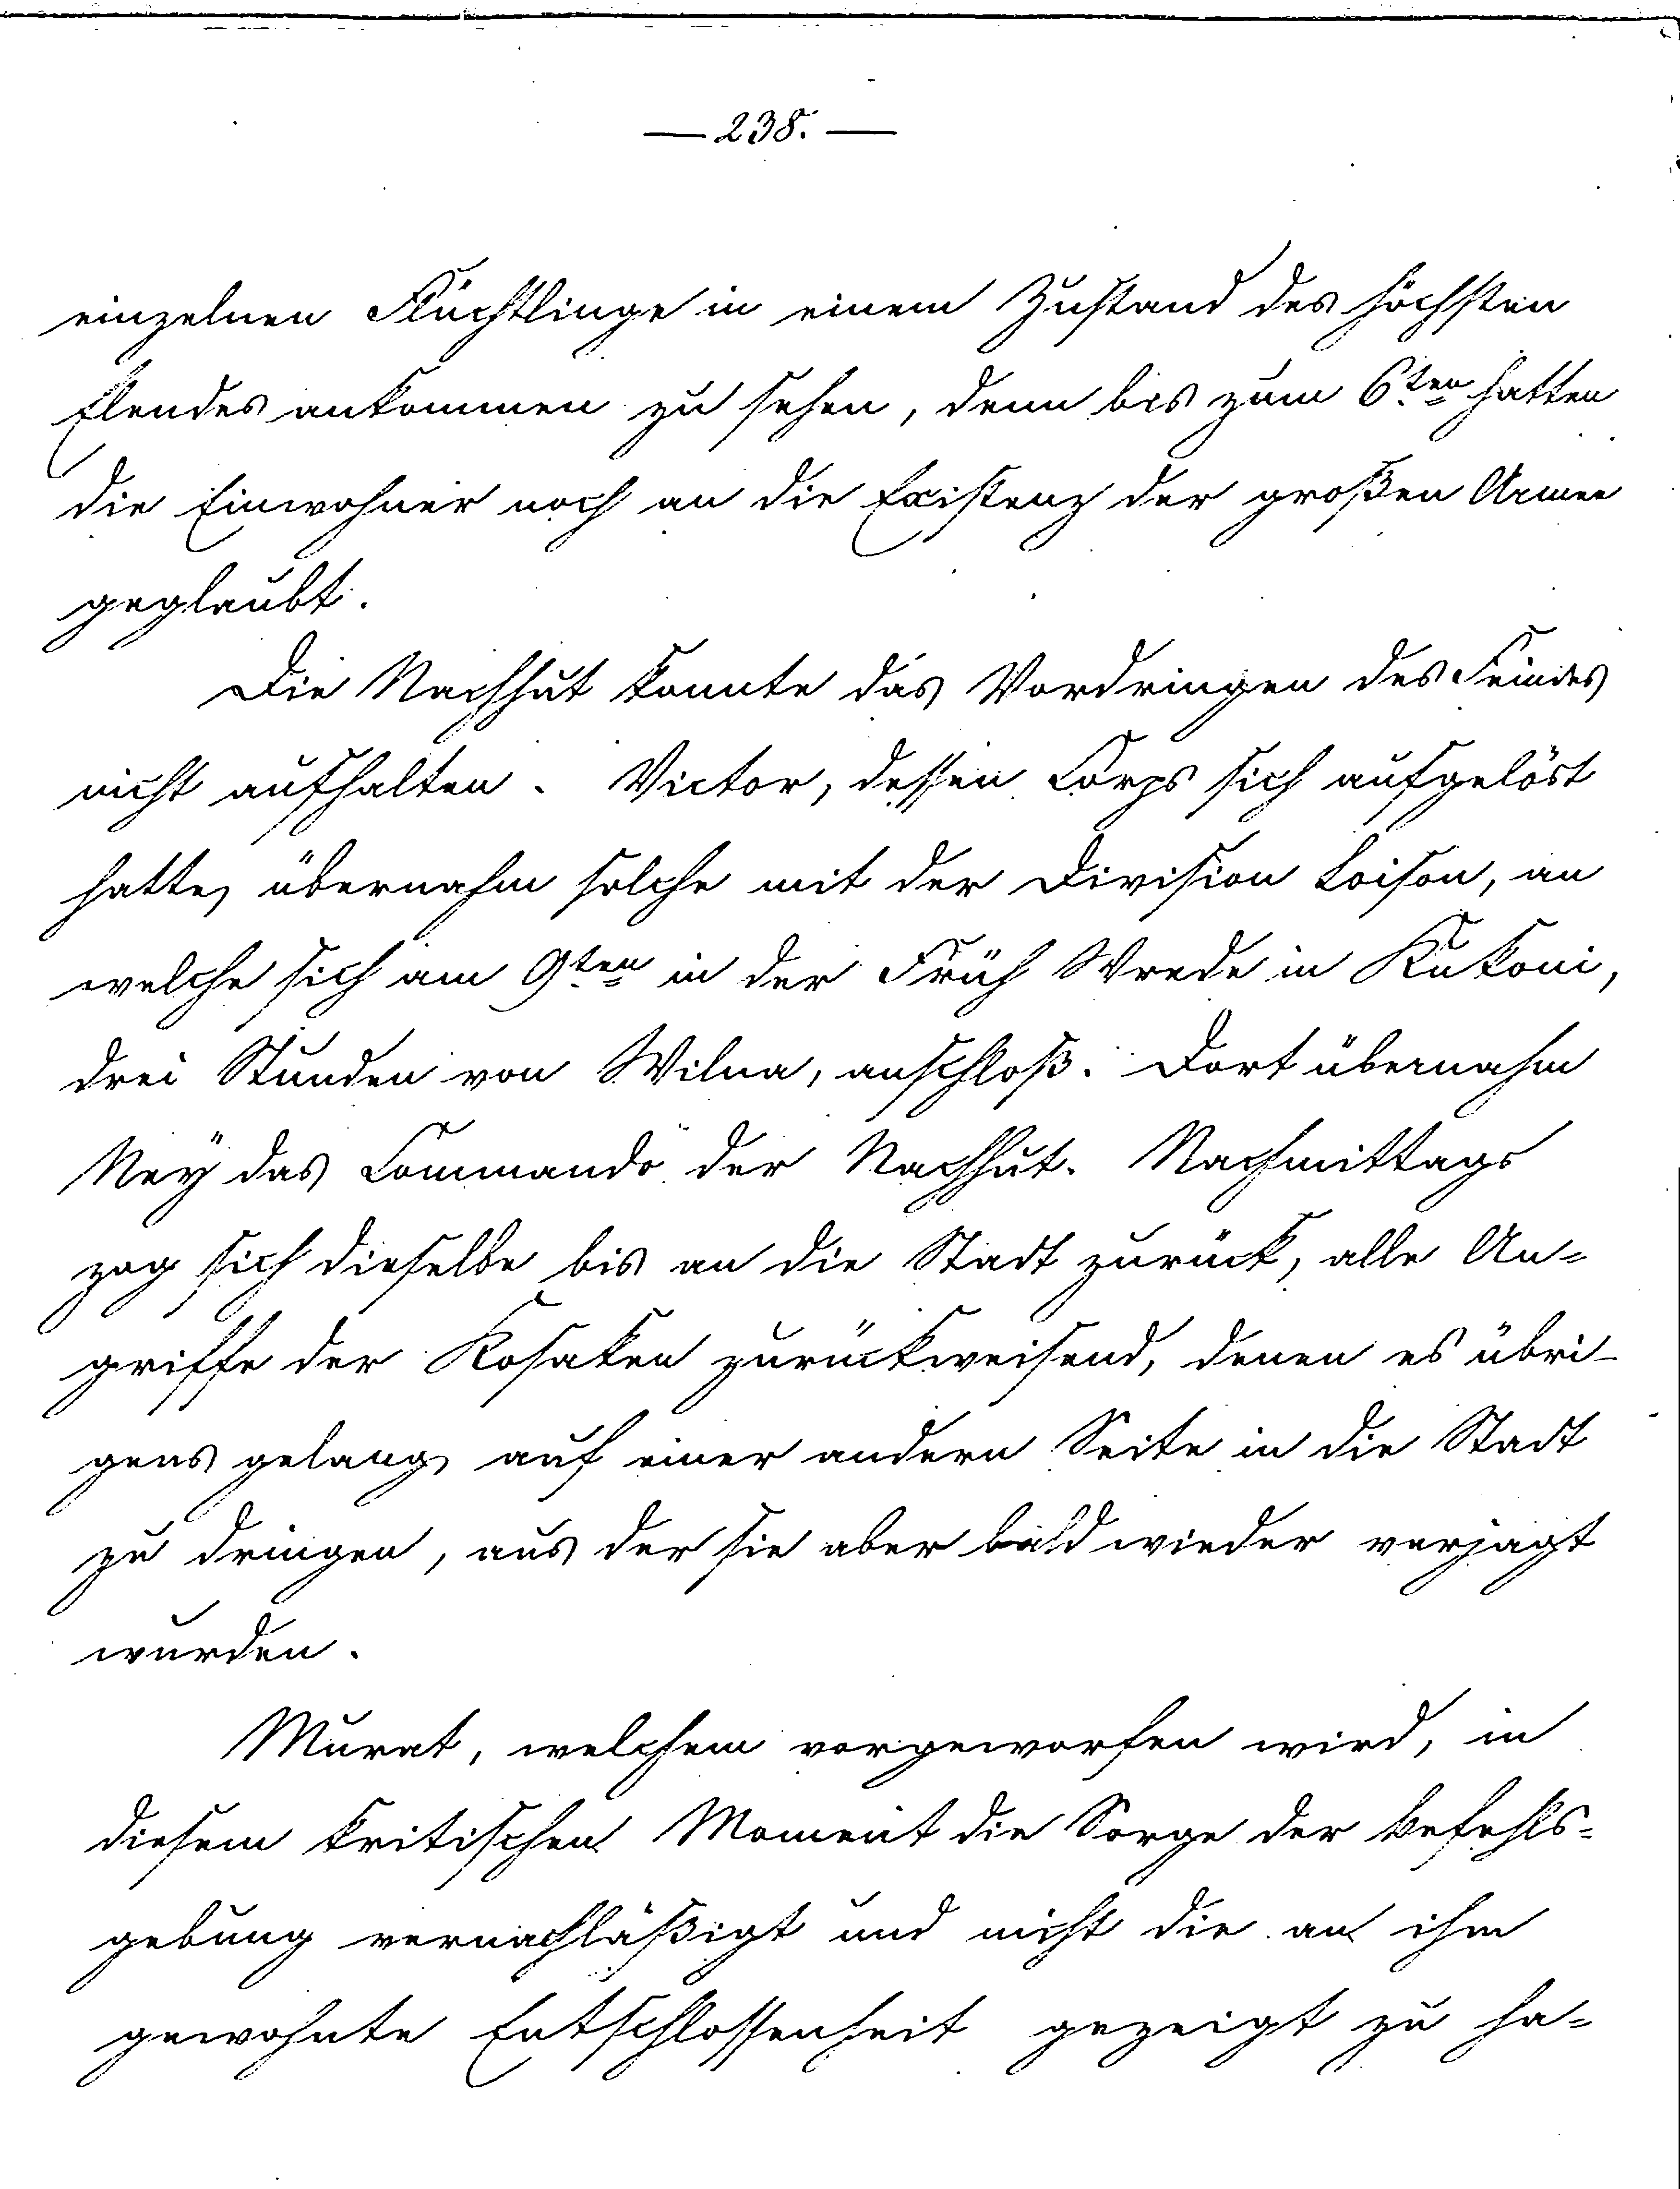 — 238. —
einzelnen Flüchtlinge in einem Zustand des höchsten
Elendes ankommen zu sehen, denn bis zum 6ten hatten
die Einwohner noch an die Existenz der großen Armee
geglaubt.
Die Nachhut konnte das Vordringen des Feindes
nicht aufhalten. Victor, dessen Corps sich aufgelöst
hatte, übernahm solche mit der Division Loison, an
welche sich am 9ten in der Früh Wrede in Kukoni,
drei Stunden von Wilna, anschloß. Dort übernahm
Neÿ das Commando der Nachhut. Nachmittags
zog sich dieselbe bis an die Stadt zurück, alle An=
griffe der Kosaken zurückweisend, denen es übri-
gens gelang, auf einer andern Seite in die Stadt
zu dringen, aus der sie aber bald wieder verjagt
wurden.
Murat, welchem vorgeworfen wird, in
diesem kritischen Moment die Sorge der Befehls=
gebung vernachläßigt und nicht die an ihm
gewohnte Entschlossenheit gezeigt zu ha=